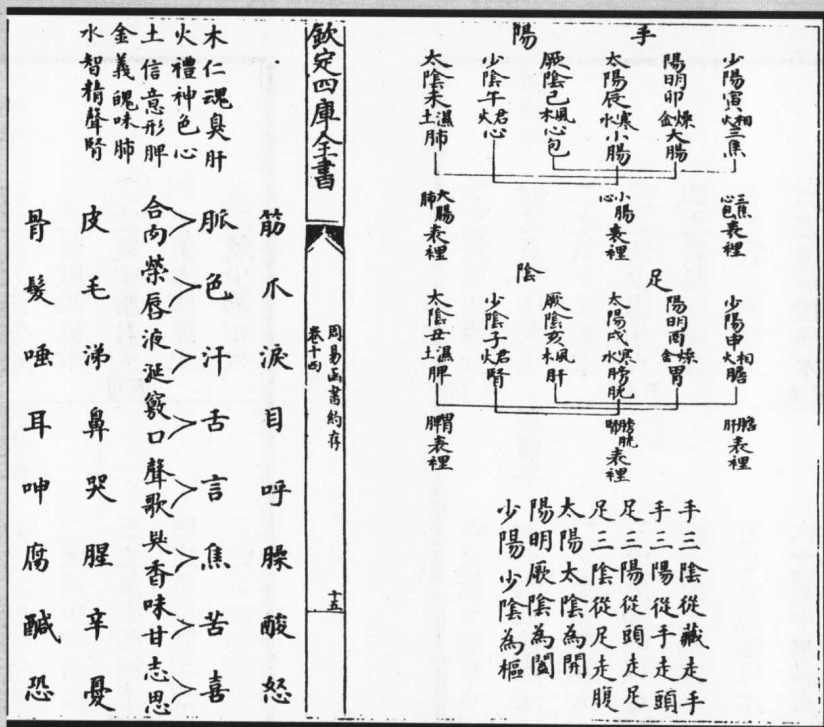 手
陽
少陽寅相火三焦
陽明卯燥金大腸
太陽辰寒水小腸
厥陰己風木心包
少陰午君火心
太陰未濕土肺
三焦心包表裡
小腸心表裡
大腸肺表裡
足
陰
少陽申相火膽
陽明酉燥金胃
太陽戌寒水膀胱
厥陰亥風木肝
少陰子君火腎
太陰丑濕土脾
膽肝表裡
膀胱腎表裡
胃脾表裡
手三陰從藏走手
手三陽從手走頭
足三陽從頭走足
足三陰從足走腹
太陽太陰為開
陽明厥陰為闔
少陽少陰為樞
欽定四庫全書
周易函書約存
卷十四
十五
木仁魂臭肝
火禮神色心
土信意形脾
金義魄味肺
水智精聲腎
筋爪淚目呼臊酸怒
脈色汗舌言焦苦喜
合肉榮唇液涎竅口聲歌臭香味甘志思
皮毛涕鼻哭腥辛憂
骨髮唾耳呻腐鹹恐